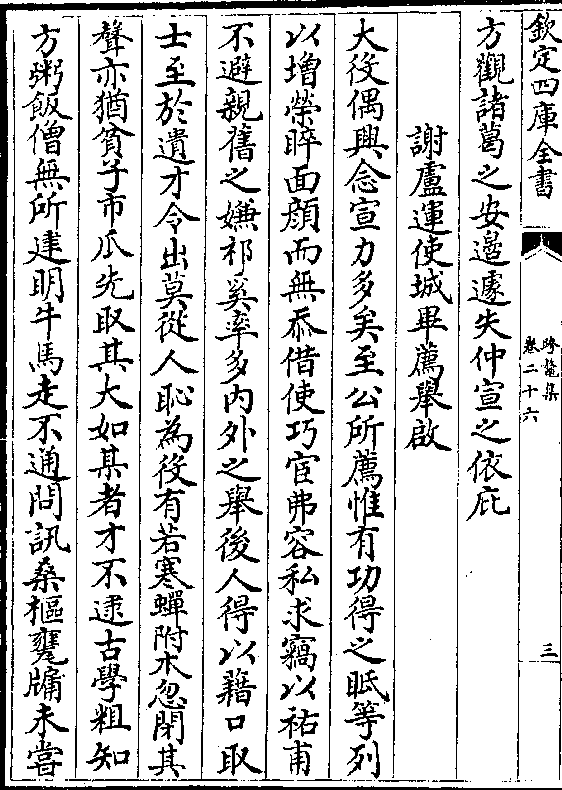 欽定四庫全書
跨鼇集
卷二十六
三
方觀諸葛之安邉遽失仲宣之依庇
謝盧運使城畢薦舉啟
大役偶興念宣力多矣至公所薦惟有功得之眂等列
以增榮睟面顔而無忝借使巧宦弗容私求竊以祐甫
不避親舊之嫌祁奚率多内外之舉後人得以藉口取
士至於遺才令出莫從人恥為役有若寒蟬附木忽閉其
聲亦猶貧子市瓜先取其大如某者才不逮古學粗知
方粥飯僧無所建明牛馬走不通問訊桑樞甕牖未嘗